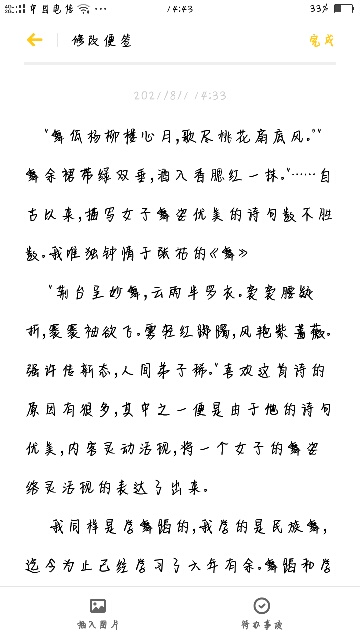 中国电信 14:43 33%
修改便签 完成
2021/8/1 14:33
"舞低杨柳楼心月,歌尽桃花扇底风。""
舞余裙带绿双垂,酒入香腮红一抹。"……自
古以来,描写女子舞姿优美的诗句数不胜
数。我唯独钟情于张祜的《舞》
"荆台呈妙舞,云雨半罗衣。袅袅腰疑
折,褰褰袖欲飞。雾轻红踯躅,风艳紫蔷薇。
强许传新态,人间弟子稀。"喜欢这首诗的
原因有很多,其中之一便是由于他的诗句
优美,内容灵动活现,将一个女子的舞姿
络灵活现的表达了出来。
我同样是学舞蹈的,我学的是民族舞,
迄今为止已经学习了六年有余。舞蹈和学
插入图片 待办事项